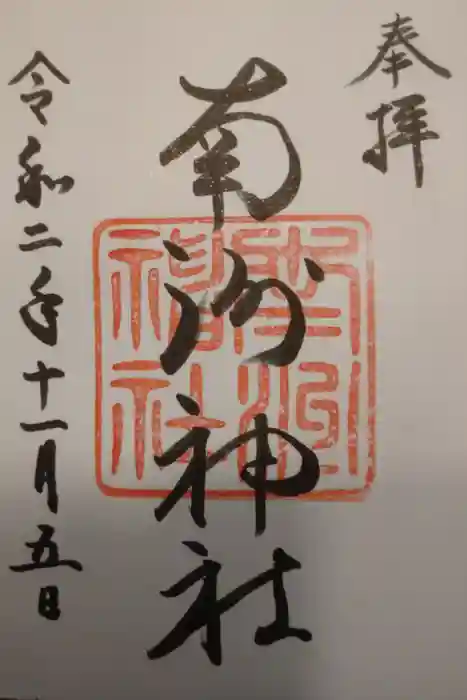 奉拝
南洲神社
令和二年十一月五日